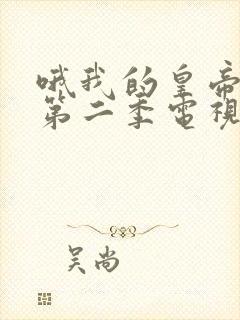 哦我的皇帝
第二季電視
吴尚